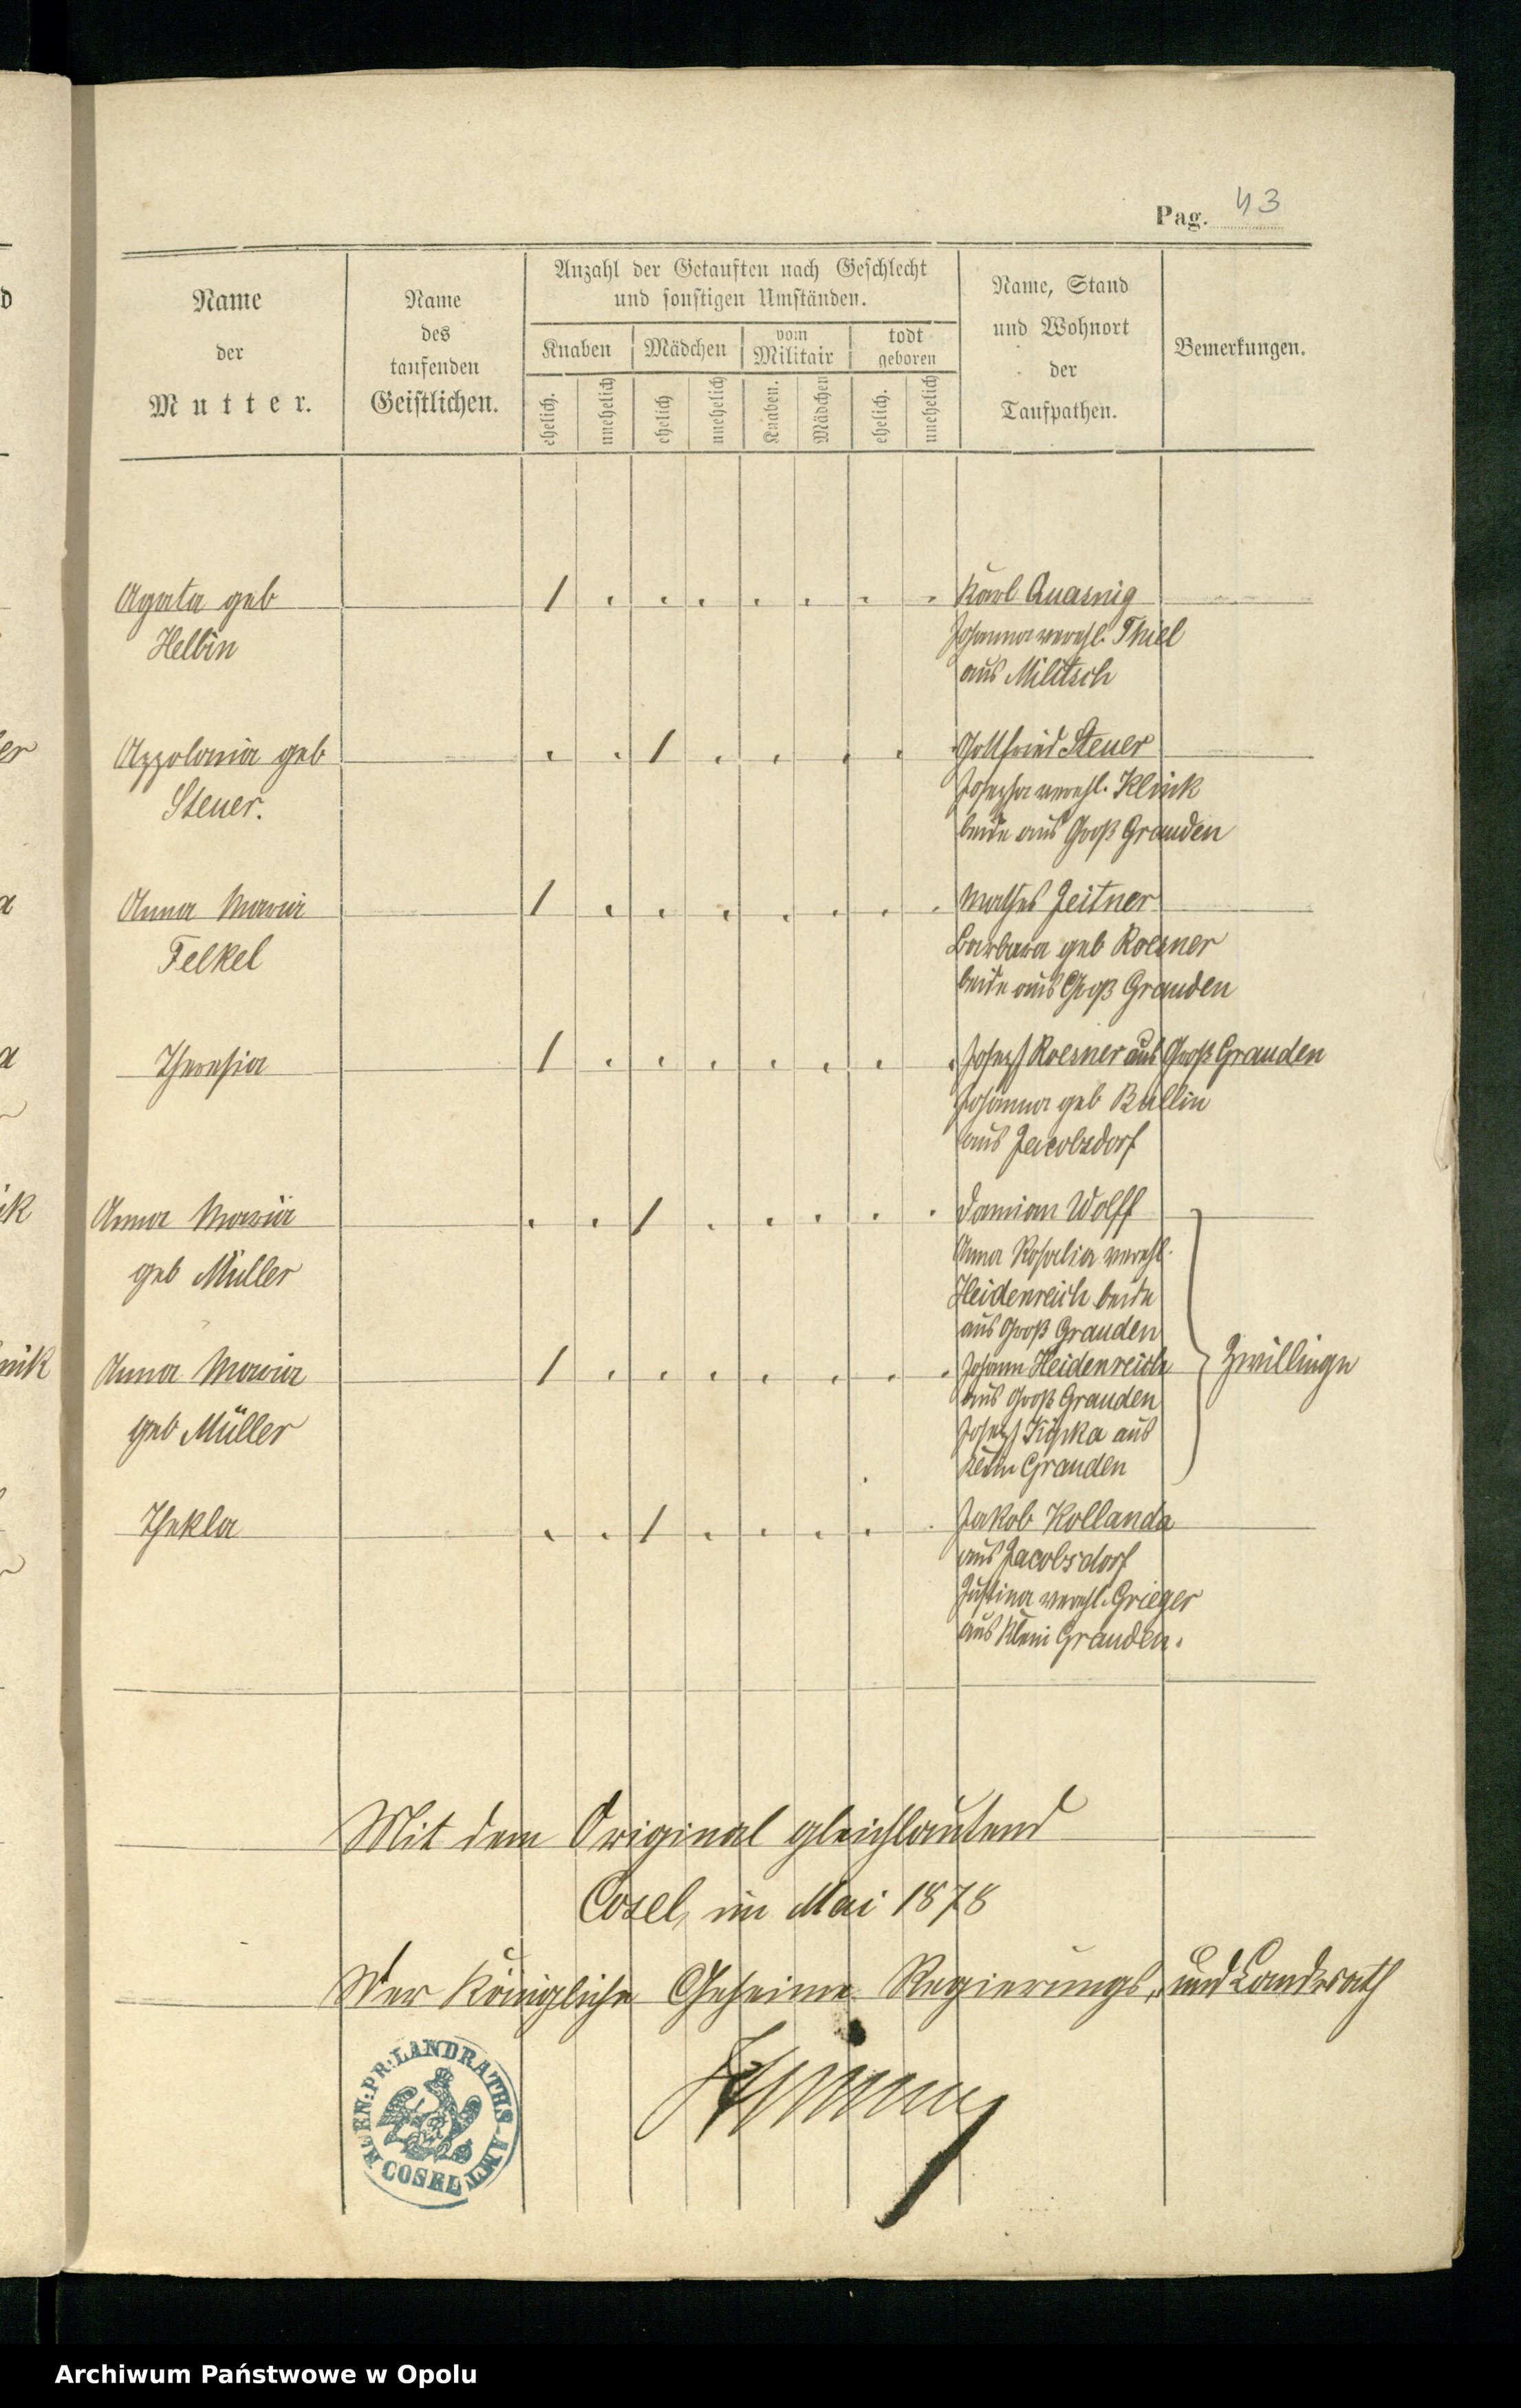 Pag. 43
Name
der
Mutter.
Name
des
taufenden
Geistlichen.
Anzahl der Getauften nach Geschlecht
und sonstigen Umständen.
Knaben
Mädchen
vom
Militair
todt
geboren
ehelich.
unehelich
ehelich
unehelich
Knaben.
Mädchen
ehelich.
unehelich
Name, Stand
und Wohnort
der
Taufpathen.
Bemerkungen.
Agata geb
Helbin
1 . . . . . . .
Karl Quasnig
Johanna verehl. Thiel
aus Militsch
Appolonia geb
Steuer.
. . 1 . . . .
Gottfried Steuer
Josepha verehl. Klink
beide aus Groß Grauden
Anna Maria
Felkel
1 . . . . . . .
Mathes Zeitner
Barbara geb Roesner
beide aus Groß Grauden
Theresia
1 . . . . . . .
Joseph Roesner aus Groß Grauden
Johanna geb Bullin
aus Jacobsdorf
Anna Maria
geb Müller
. . 1 . . . . .
Damian Wolff
Anna Rosalia verehl.
Heidenreich beide
aus Groß Grauden
Anna Maria
geb Müller
1 . . . . . . .
Johann Heidenreich
aus Groß Grauden
Joseph Kipka aus
Klein Grauden
Zwillinge
Thekla
. . 1 . . . . .
Jakob Kollanda
aus Jacobsdorf
Justina verehl. Grieger
aus Klein Grauden.
Mit dem Original gleichlautend
Cosel, im Mai 1878
Der Königliche Geheime Regierungs- und Landrath
KOEN: PR: LANDRATHS AMT
COSEL
Archiwum Państwowe w Opolu